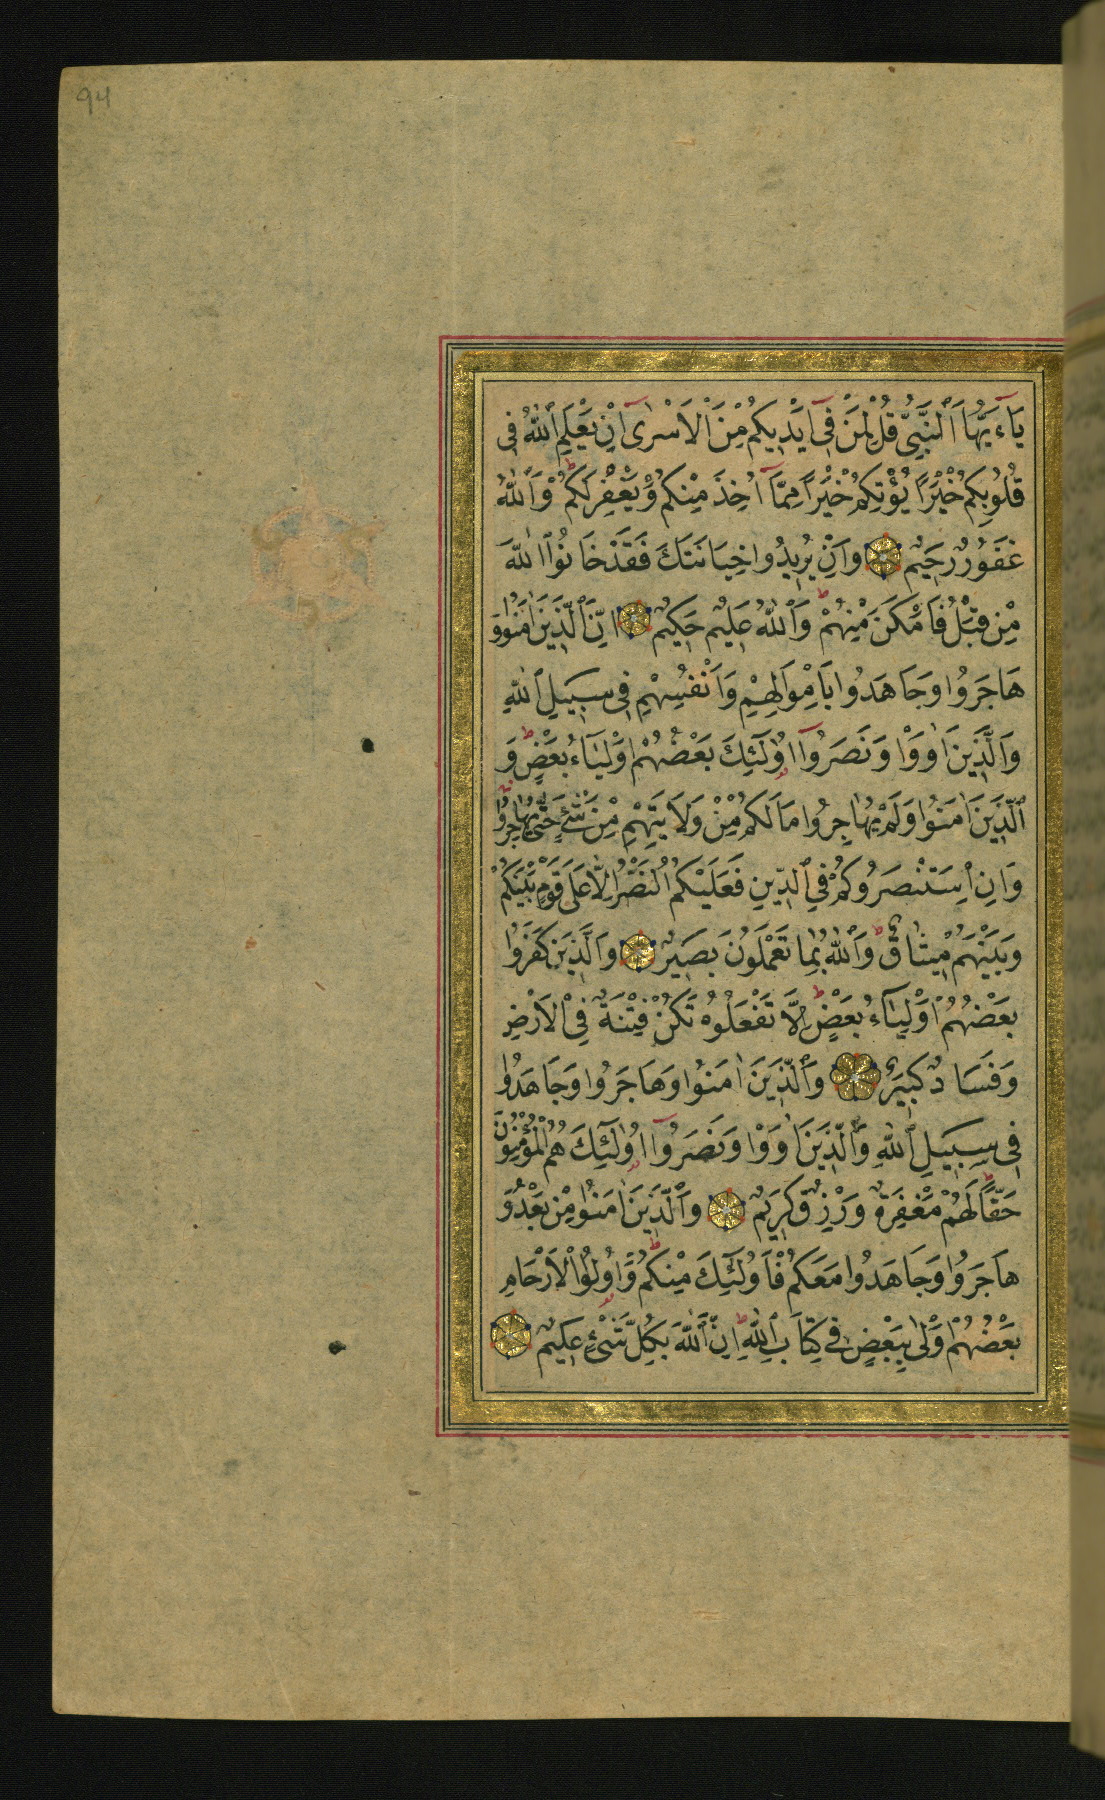 94
يَاءَيُّهَا ٱلنَّبِيُّ قُلْ لِمَنْ فِىٓ اَيْدِيكُمْ مِنَ ٱلْاَسْرٰىٓ اِنْ يَعْلَمِ ٱللّٰهُ فِى
قُلُوبِكُمْ خَيْرًا يُؤْتِكُمْ خَيْرًا مِمَّآ اُخِذَ مِنْكُمْ وَيَغْفِرْ لَكُمْ ط وَٱللّٰهُ
غَفُورٌ رَحِيمٌ وَاِنْ يُرِيدُوا خِيَانَتَكَ فَقَدْ خَانُوا ٱللّٰهَ
مِنْ قَبْلُ فَاَمْكَنَ مِنْهُمْ ط وَٱللّٰهُ عَلِيمٌ حَكِيمٌ اِنَّ ٱلَّذِينَ اٰمَنُوا وَ
هَاجَرُوا وَجَاهَدُوا بِاَمْوَالِهِمْ وَاَنْفُسِهِمْ فِى سَبِيلِ ٱللّٰهِ
وَٱلَّذِينَ اٰوَوْا وَنَصَرُوٓا اُولٰٓئِكَ بَعْضُهُمْ اَوْلِيَاءُ بَعْضٍ ط وَ
ٱلَّذِينَ اٰمَنُوا وَلَمْ يُهَاجِرُوا مَا لَكُمْ مِنْ وَلَايَتِهِمْ مِنْ شَىْءٍ حَتّٰى يُهَاجِرُوا
وَاِنِ ٱسْتَنْصَرُوكُمْ فِى ٱلدِّينِ فَعَلَيْكُمُ ٱلنَّصْرُ اِلَّا عَلٰى قَوْمٍ بَيْنَكُمْ
وَبَيْنَهُمْ مِيثَاقٌ ط وَٱللّٰهُ بِمَا تَعْمَلُونَ بَصِيرٌ وَٱلَّذِينَ كَفَرُوا
بَعْضُهُمْ اَوْلِيَآءُ بَعْضٍ ط اِلَّا تَفْعَلُوهُ تَكُنْ فِتْنَةٌ فِى ٱلْاَرْضِ
وَفَسَادٌ كَبِيرٌ وَٱلَّذِينَ اٰمَنُوا وَهَاجَرُوا وَجَاهَدُوا
فِى سَبِيلِ ٱللّٰهِ وَٱلَّذِينَ اٰوَوْا وَنَصَرُوٓا اُولٰٓئِكَ هُمُ ٱلْمُؤْمِنُونَ
حَقًّا ط لَهُمْ مَغْفِرَةٌ وَرِزْقٌ كَرِيمٌ وَٱلَّذِينَ اٰمَنُوا مِنْ بَعْدُ وَ
هَاجَرُوا وَجَاهَدُوا مَعَكُمْ فَاُولٰٓئِكَ مِنْكُمْ ط وَاُولُوا ٱلْاَرْحَامِ
بَعْضُهُمْ اَوْلٰى بِبَعْضٍ فِى كِتَابِ ٱللّٰهِ ط اِنَّ ٱللّٰهَ بِكُلِّ شَىْءٍ عَلِيمٌ